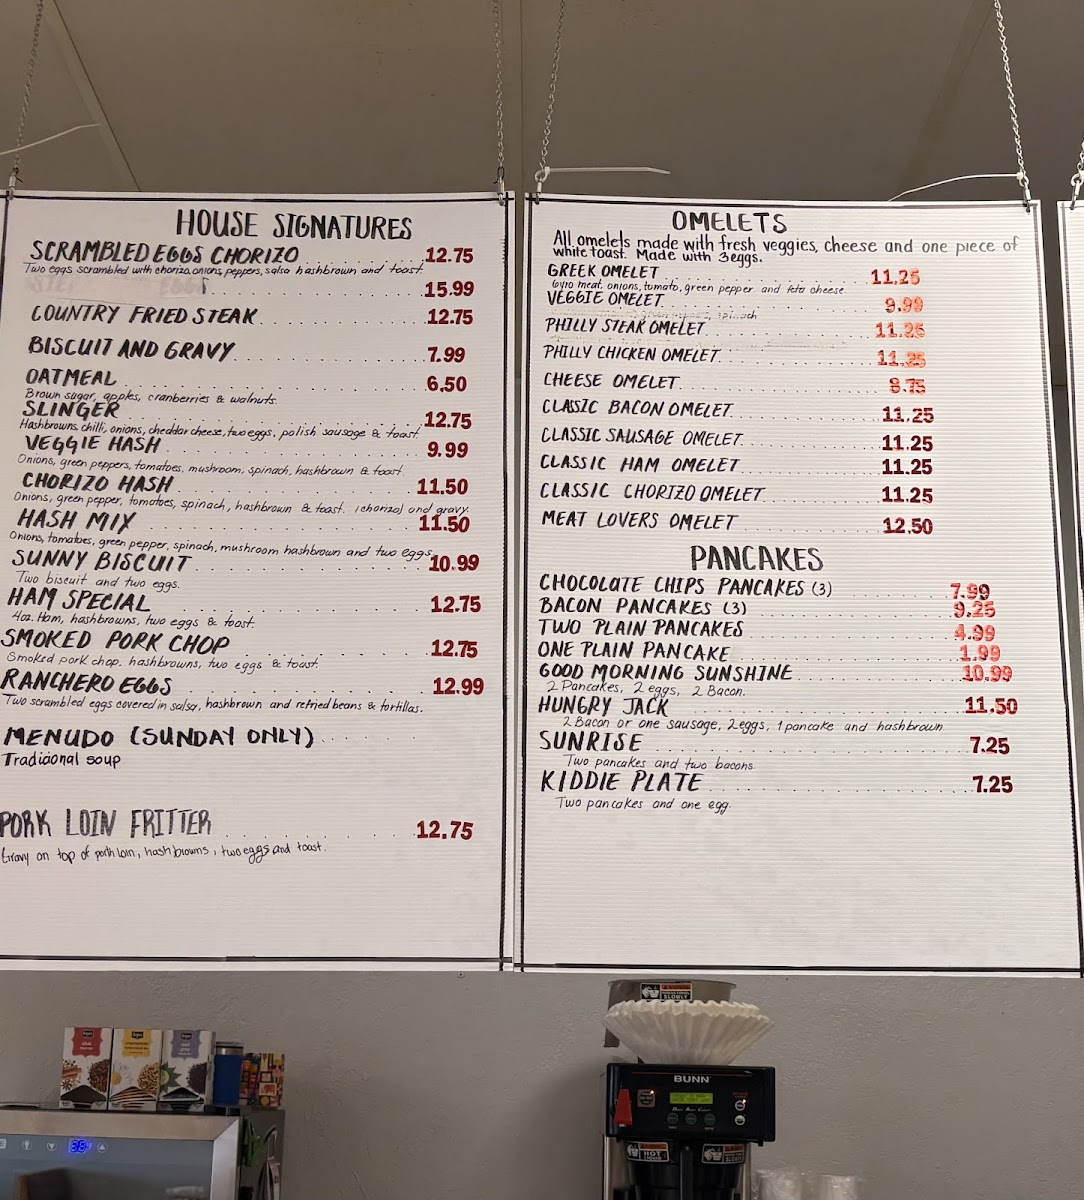 HOUSE SIGNATURES
SCRAMBLED EGGS CHORIZO 12.75
Two eggs scrambled with chorizo, onions, peppers, salsa hashbrown and toast.
15.99
COUNTRY FRIED STEAK 12.75
BISCUIT AND GRAVY 7.99
OATMEAL 6.50
Brown sugar, apples, cranberries & walnuts.
SLINGER 12.75
Hashbrowns, chilli, onions, cheddar cheese, two eggs, polish sausage & toast.
VEGGIE HASH 9.99
Onions, green peppers, tomatoes, mushroom, spinach, hashbrown & toast.
CHORIZO HASH 11.50
Onions, green pepper, tomatoes, spinach, hashbrown & toast. (chorizo) and gravy.
HASH MIX 11.50
Onions, tomatoes, green pepper, spinach, mushroom hashbrown and two eggs.
SUNNY BISCUIT 10.99
Two biscuit and two eggs.
HAM SPECIAL 12.75
4oz. Ham, hashbrowns, two eggs & toast.
SMOKED PORK CHOP 12.75
Smoked pork chop, hashbrowns, two eggs & toast.
RANCHERO EGGS 12.99
Two scrambled eggs covered in salsa, hashbrown and refried beans & tortillas.
MENUDO (SUNDAY ONLY)
Tradicional soup
PORK LOIN FRITTER 12.75
Gravy on top of pork loin, hash browns, two eggs and toast.
OMELETS
All omelets made with fresh veggies, cheese and one piece of
white toast. Made with 3eggs.
GREEK OMELET 11.25
Gyro meat, onions, tomato, green pepper and feta cheese.
VEGGIE OMELET 9.99
spinach
PHILLY STEAK OMELET 11.25
PHILLY CHICKEN OMELET 11.25
CHEESE OMELET 8.75
CLASSIC BACON OMELET 11.25
CLASSIC SAUSAGE OMELET 11.25
CLASSIC HAM OMELET 11.25
CLASSIC CHORIZO OMELET 11.25
MEAT LOVERS OMELET 12.50
PANCAKES
CHOCOLATE CHIPS PANCAKES (3) 7.99
BACON PANCAKES (3) 9.25
TWO PLAIN PANCAKES 4.99
ONE PLAIN PANCAKE 1.99
GOOD MORNING SUNSHINE 10.99
2 Pancakes, 2 eggs, 2 Bacon.
HUNGRY JACK 11.50
2 Bacon or one sausage, 2eggs, 1 pancake and hashbrown
SUNRISE 7.25
Two pancakes and two bacons.
KIDDIE PLATE 7.25
Two pancakes and one egg.
SLOWLY
BUNN
HOT